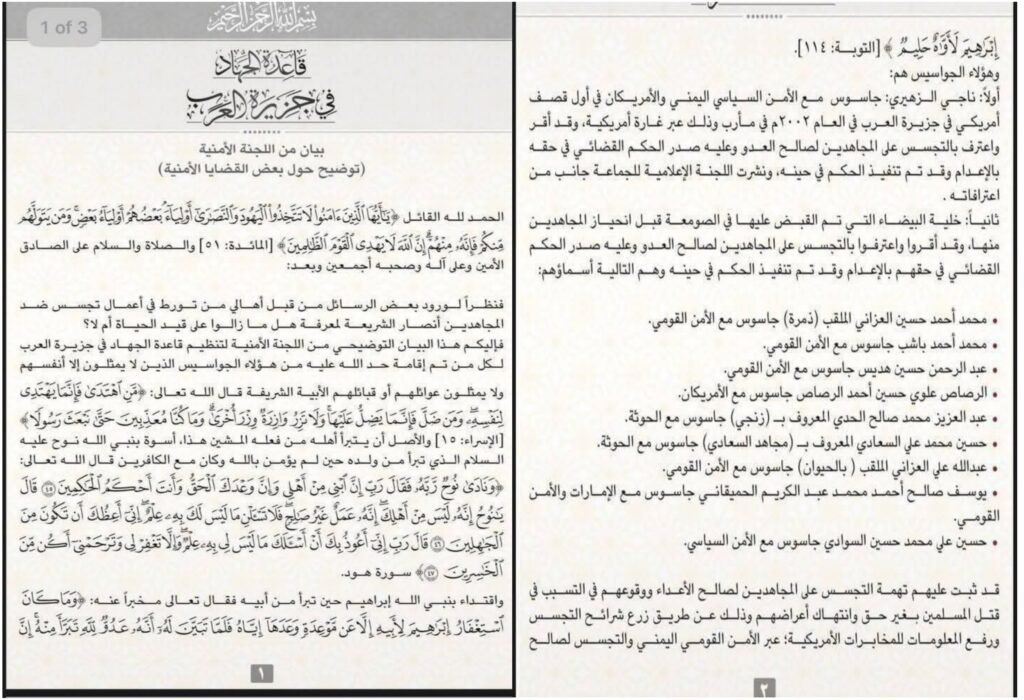 1 of 3
بسم الله الرحمن الرحيم
قاعدة الجهاد
في جزيرة العرب
بيان من اللجنة الأمنية
(توضيح حول بعض القضايا الأمنية)
الحمد لله القائل ﴿يَٰٓأَيُّهَا ٱلَّذِينَ ءَامَنُوا۟ لَا تَتَّخِذُوا۟ ٱلْيَهُودَ وَٱلنَّصَٰرَىٰٓ أَوْلِيَآءَ بَعْضُهُمْ أَوْلِيَآءُ بَعْضٍ وَمَن يَتَوَلَّهُم
مِّنكُمْ فَإِنَّهُۥ مِنْهُمْ إِنَّ ٱللَّهَ لَا يَهْدِى ٱلْقَوْمَ ٱلظَّٰلِمِينَ﴾ [المائدة: ٥١] والصلاة والسلام على الصادق
الأمين وعلى آله وصحبه أجمعين وبعد:
فنظراً لورود بعض الرسائل من قبل أهالي من تورط في أعمال تجسس ضد
المجاهدين أنصار الشريعة لمعرفة هل ما زالوا على قيد الحياة أم لا؟
فإليكم هذا البيان التوضيحي من اللجنة الأمنية لتنظيم قاعدة الجهاد في جزيرة العرب
لكل من تم إقامة حد الله عليه من هؤلاء الجواسيس الذين لا يمثلون إلا أنفسهم
ولا يمثلون عوائلهم أو قبائلهم الأبية الشريفة قال الله تعالى: ﴿مَّنِ ٱهْتَدَىٰ فَإِنَّمَا يَهْتَدِى
لِنَفْسِهِۦ وَمَن ضَلَّ فَإِنَّمَا يَضِلُّ عَلَيْهَا وَلَا تَزِرُ وَازِرَةٌ وِزْرَ أُخْرَىٰ وَمَا كُنَّا مُعَذِّبِينَ حَتَّىٰ نَبْعَثَ رَسُولًا﴾
[الإسراء: ١٥] والأصل أن يتبرأ أهله من فعله المشين هذا، أسوة بنبي الله نوح عليه
السلام الذي تبرأ من ولده حين لم يؤمن بالله وكان مع الكافرين قال الله تعالى:
﴿وَنَادَىٰ نُوحٌ رَّبَّهُۥ فَقَالَ رَبِّ إِنَّ ٱبْنِى مِنْ أَهْلِى وَإِنَّ وَعْدَكَ ٱلْحَقُّ وَأَنتَ أَحْكَمُ ٱلْحَٰكِمِينَ ٤٥ قَالَ
يَٰنُوحُ إِنَّهُۥ لَيْسَ مِنْ أَهْلِكَ إِنَّهُۥ عَمَلٌ غَيْرُ صَٰلِحٍ فَلَا تَسْـَٔلْنِ مَا لَيْسَ لَكَ بِهِۦ عِلْمٌ إِنِّىٓ أَعِظُكَ أَن تَكُونَ مِنَ
ٱلْجَٰهِلِينَ ٤٦ قَالَ رَبِّ إِنِّىٓ أَعُوذُ بِكَ أَنْ أَسْـَٔلَكَ مَا لَيْسَ لِى بِهِۦ عِلْمٌ وَإِلَّا تَغْفِرْ لِى وَتَرْحَمْنِىٓ أَكُن مِّنَ
ٱلْخَٰسِرِينَ ٤٧﴾ سورة هود.
واقتداء بنبي الله إبراهيم حين تبرأ من أبيه فقال تعالى مخبراً عنه: ﴿وَمَا كَانَ
ٱسْتِغْفَارُ إِبْرَٰهِيمَ لِأَبِيهِ إِلَّا عَن مَّوْعِدَةٍ وَعَدَهَآ إِيَّاهُ فَلَمَّا تَبَيَّنَ لَهُۥٓ أَنَّهُۥ عَدُوٌّ لِّلَّهِ تَبَرَّأَ مِنْهُ إِنَّ
١
إِبْرَٰهِيمَ لَأَوَّٰهٌ حَلِيمٌ﴾ [التوبة: ١١٤].
وهؤلاء الجواسيس هم:
أولاً: ناجي الزهيري: جاسوس مع الأمن السياسي اليمني والأمريكان في أول قصف
أمريكي في جزيرة العرب في العام ٢٠٠٢م في مأرب وذلك عبر غارة أمريكية، وقد أقر
واعترف بالتجسس على المجاهدين لصالح العدو وعليه صدر الحكم القضائي في حقه
بالإعدام وقد تم تنفيذ الحكم في حينه، ونشرت اللجنة الإعلامية للجماعة جانب من
اعترافاته .
ثانياً: خلية البيضاء التي تم القبض عليها في الصومعة قبل انحياز المجاهدين
منها، وقد أقروا واعترفوا بالتجسس على المجاهدين لصالح العدو وعليه صدر الحكم
القضائي في حقهم بالإعدام وقد تم تنفيذ الحكم في حينه وهم التالية أسماؤهم:
• محمد أحمد حسين العزاني الملقب (ذمرة) جاسوس مع الأمن القومي.
• محمد أحمد باشب جاسوس مع الأمن القومي.
• عبد الرحمن حسين هديس جاسوس مع الأمن القومي.
• الرصاص علوي حسين أحمد الرصاص جاسوس مع الأمريكان.
• عبد العزيز محمد صالح الحدي المعروف بـ (زنجي) جاسوس مع الحوثة.
• حسين محمد علي السعادي المعروف بـ (مجاهد السعادي) جاسوس مع الحوثة.
• عبدالله علي العزاني الملقب ( بالحيوان) جاسوس مع الأمن القومي.
• يوسف صالح أحمد محمد عبد الكريم الحميقاني جاسوس مع الإمارات والأمن
القومي.
• حسين علي محمد حسين السوادي جاسوس مع الأمن السياسي.
قد ثبت عليهم تهمة التجسس على المجاهدين لصالح الأعداء ووقوعهم في التسبب في
قتل المسلمين بغير حق وانتهاك أعراضهم وذلك عن طريق زرع شرائح التجسس
ورفع المعلومات للمخابرات الأمريكية؛ عبر الأمن القومي اليمني والتجسس لصالح
٢